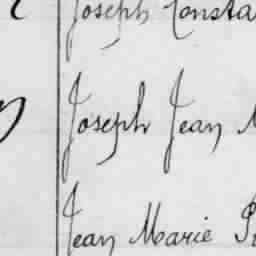 Joseph Consta
Joseph Jean
Jean Marie